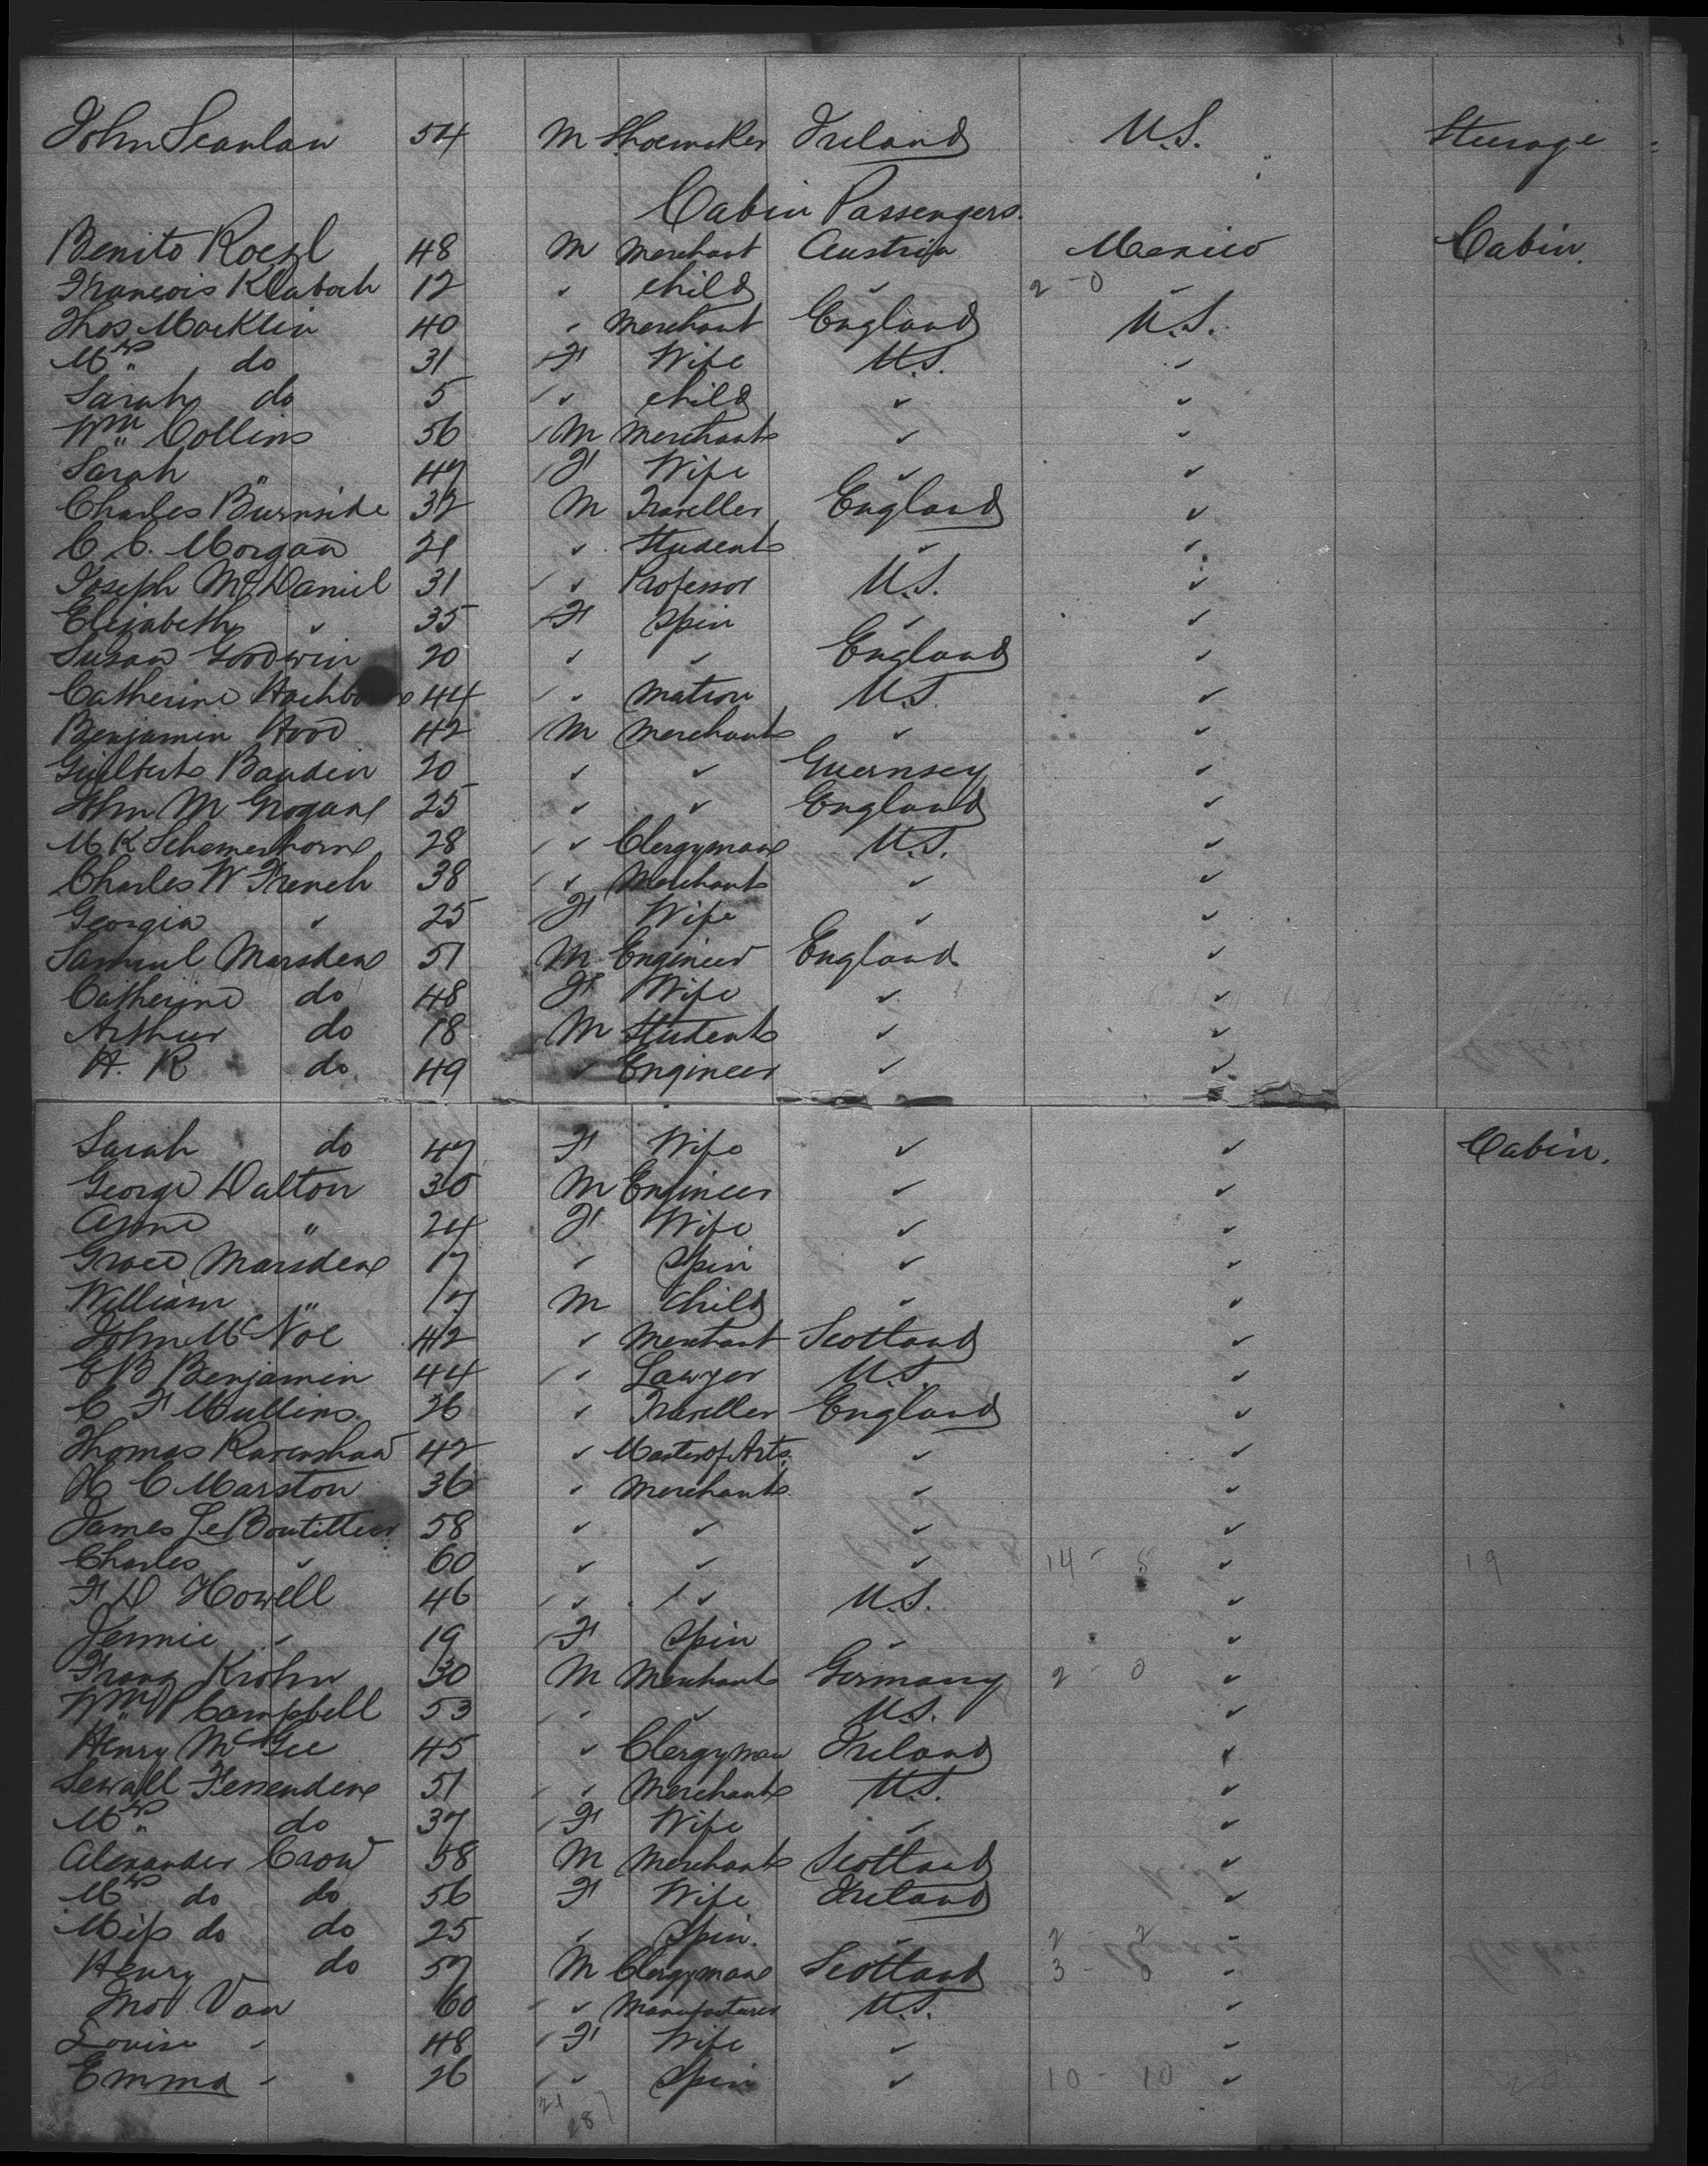 John Scanlan 54 M Shoemaker Ireland U.S. Steerage
Cabin Passengers.
Benito Roezl 48 M Merchant Austria Mexico Cabin.
François Klaboch 12 ✓ child ✓ 2 - 0 ✓
Thos Macklin 40 ✓ Merchant England U.S.
Mrs. do 31 F Wife U.S. ✓
Sarah do 5 ✓ child ✓ ✓
Wm Collins 56 M Merchant ✓ ✓
Sarah " 47 F Wife ✓ ✓
Charles Burnside 32 M Traveller England ✓
C. C. Morgan 21 ✓ Student ✓ ✓
Joseph McDaniel 31 ✓ Professor U.S. ✓
Elizabeth ✓ 35 F Spin ✓ ✓
Susan Goodwin 20 ✓ ✓ England ✓
Catherine 44 ✓ Matron U.S. ✓
Benjamin Hood 42 M Merchant ✓ ✓
Guilbert Baudin 20 ✓ ✓ Guernsey ✓
John M Grogan 25 ✓ ✓ England ✓
M K Schemerhorne 28 ✓ Clergyman U.S. ✓
Charles W French 38 ✓ Merchant ✓ ✓
Georgia ✓ 25 F Wife ✓ ✓
Samuel Marsden 51 M Engineer England ✓
Catherine do 48 F Wife ✓ ✓
Arthur do 18 M Student ✓ ✓
H. R do 49 ✓ Engineer ✓ ✓
Sarah do 47 F Wife ✓ ✓ Cabin.
George Dalton 30 M Engineer ✓ ✓
Anne " 24 F Wife ✓ ✓
Grace Marsden 17 ✓ Spin ✓ ✓
William " 17 M Child ✓ ✓
John McNoe 42 ✓ Merchant Scotland ✓
E B Benjamin 44 ✓ Lawyer U.S. ✓
C F Mullins 26 ✓ Traveller England ✓
Thomas Ravenshaw 42 ✓ Master of Arts. ✓ ✓
H C Marston 36 ✓ Merchant ✓ ✓
James Le Boutillier 58 ✓ ✓ ✓ ✓
Charles ✓ 60 ✓ ✓ ✓ 14 - 5 ✓ 19
F D Howell 46 ✓ ✓ U.S. ✓
Jennie ✓ 19 F Spin ✓ ✓
Franz Krohn 30 M Merchant Germany 2 - 0 ✓
Wm P Campbell 53 ✓ ✓ U.S. ✓
Henry McGee 45 ✓ Clergyman Ireland ✓
Sewall Fessenden 51 ✓ Merchant U.S. ✓
Mrs. do 37 F Wife ✓ ✓
Alexander Crow 58 M Merchant Scotland ✓
Mrs do do 56 F Wife Ireland ✓
Miss do do 25 ✓ Spin. ✓ 2 - 2 ✓
Henry do 57 M Clergyman Scotland 3 - 0 ✓
Van 60 ✓ Manufacturer U.S. ✓
Louise ✓ 48 F Wife ✓ ✓
Emma ✓ 26 ✓ Spin ✓ 10 - 10 ✓